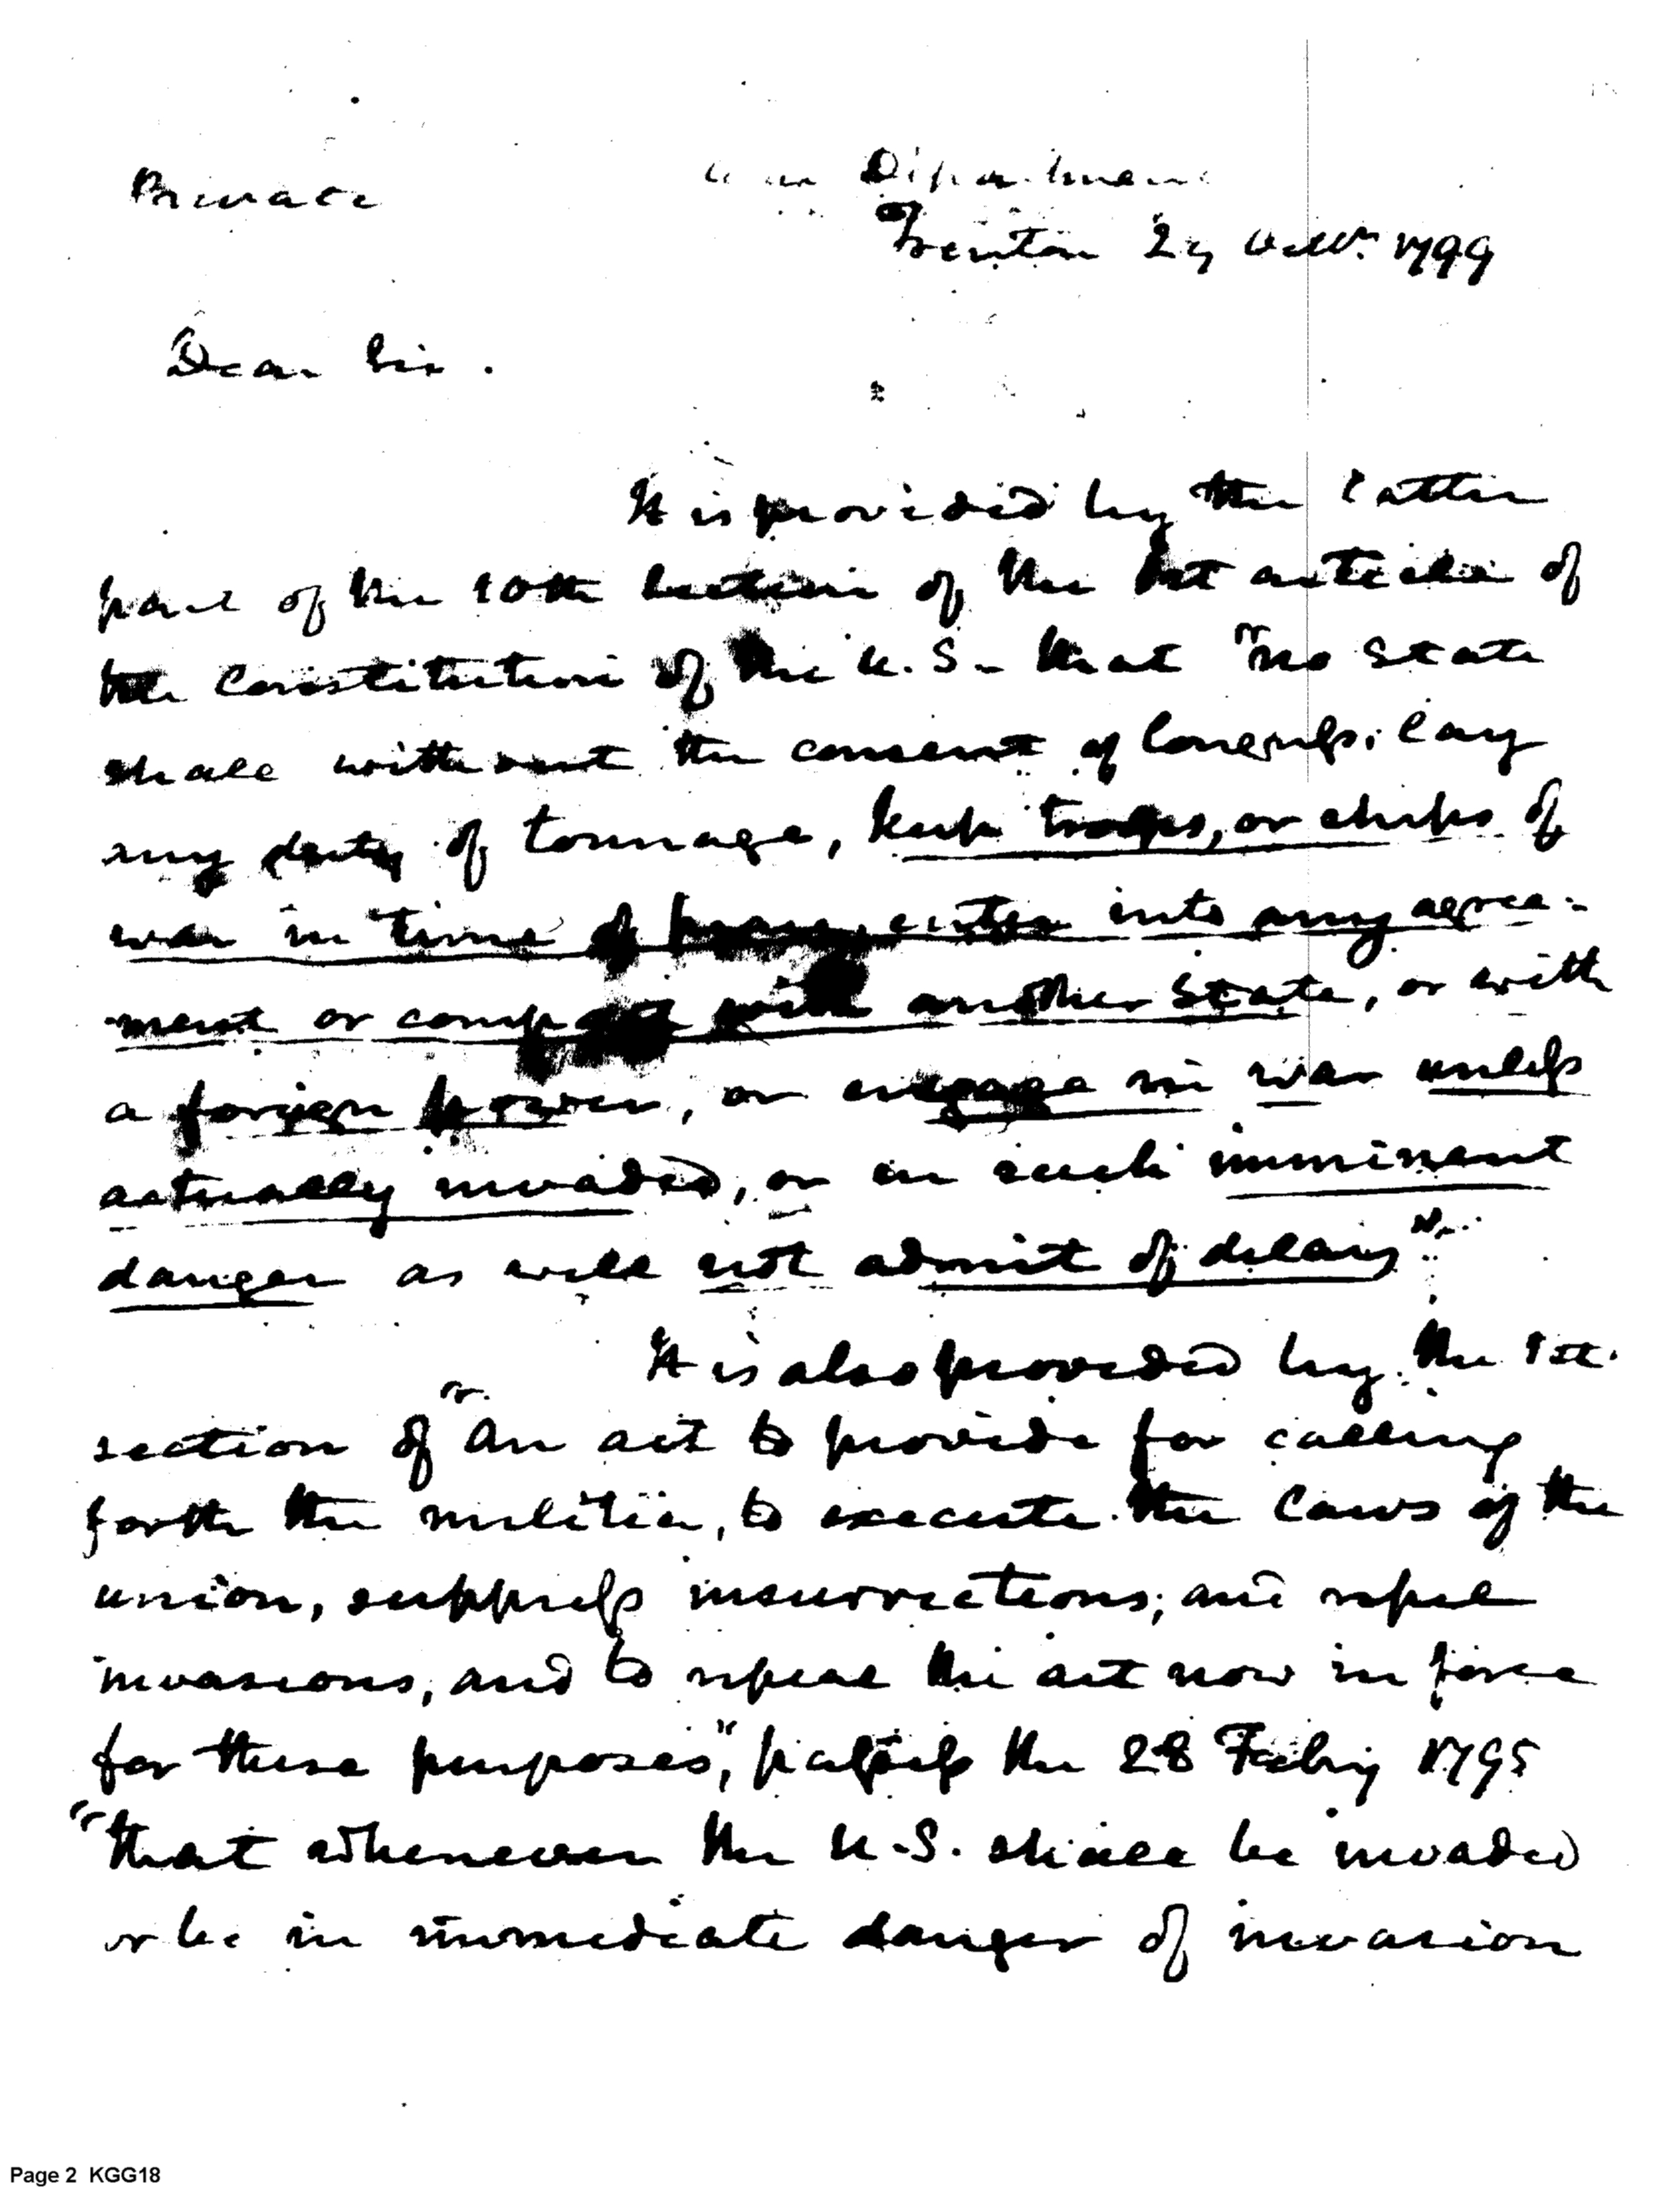 Private
War Department
Trenton 29 Octbr. 1799
Dear Sir.
It is provided by the latter
part of the 10th section of the 1st article of
the Constitution of the U.S. that "no state
shall without the consent of Congress, lay
any duty of tonnage, keep troops, or ships of
war in time of peace, enter into any agree-
ment or compact with another State, or with
a foreign power, or engage in war unless
actually invaded, or in such imminent
danger as will not admit of delay"
It is also provided by the 1st.
section of "An act to provide for calling
forth the militia, to execute the laws of the
union, suppress insurrections; and repel
invasions, and to repeal the act now in force
for these purposes", passed the 28 Feby 1795
"that whenever the U.S. shall be invaded
or be in immediate danger of invasion
Page 2 KGG18